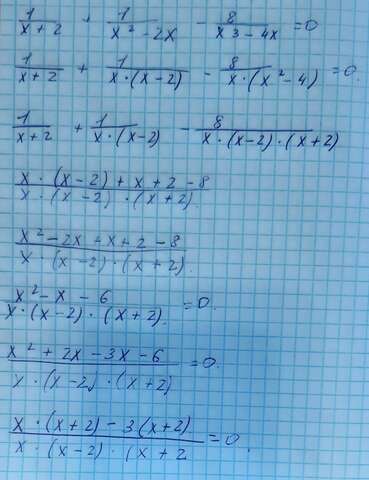 1/(x+2) + 1/(x²-2x) - 8/(x3-4x) =0
1/(x+2) + 1/(x·(x-2)) - 8/(x·(x²-4)) =0.
1/(x+2) + 1/(x·(x-2)) - 8/(x·(x-2)·(x+2))
(x·(x-2)+x+2-8)/(x·(x-2)·(x+2).)
(x²-2x+x+2-8)/(x·(x-2)·(x+2).)
(x²-x-6)/(x·(x-2)·(x+2).) =0.
(x²+2x-3x-6)/(x·(x-2)·(x+2)) =0.
(x·(x+2)-3(x+2))/(x·(x-2)·(x+2) =0.